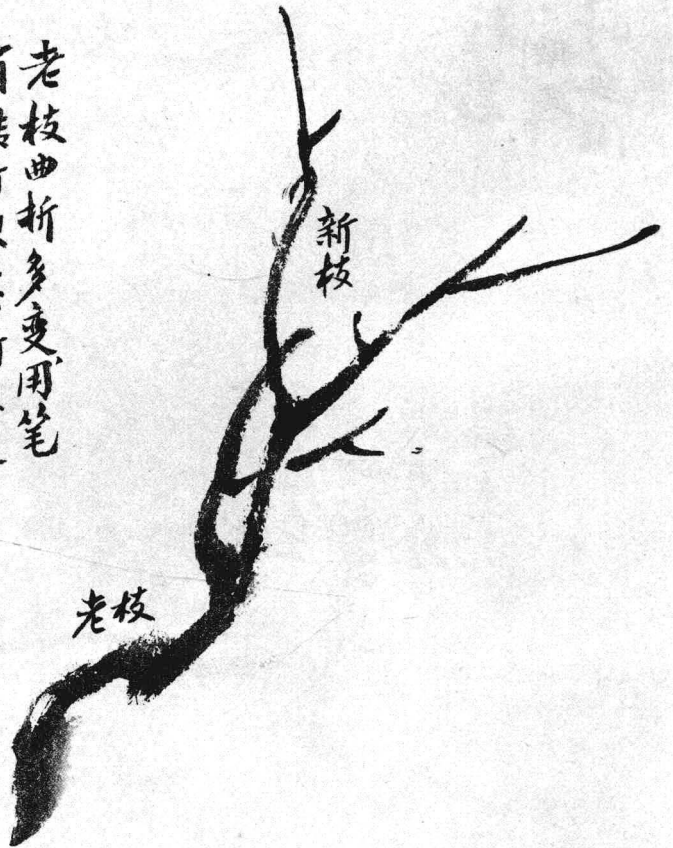 老枝曲折多变用笔
新枝
老枝